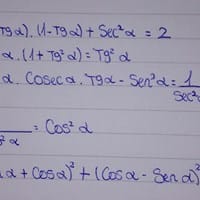 Tgα).(1-Tgα) + Sec²α = 2
α.(1+Tg²α) = Tg²α
α. Cosecα. Tgα - Sen²α = 1
Sec²
= Cos²α
g²α
α + Cosα)² + (Cosα - Senα)²